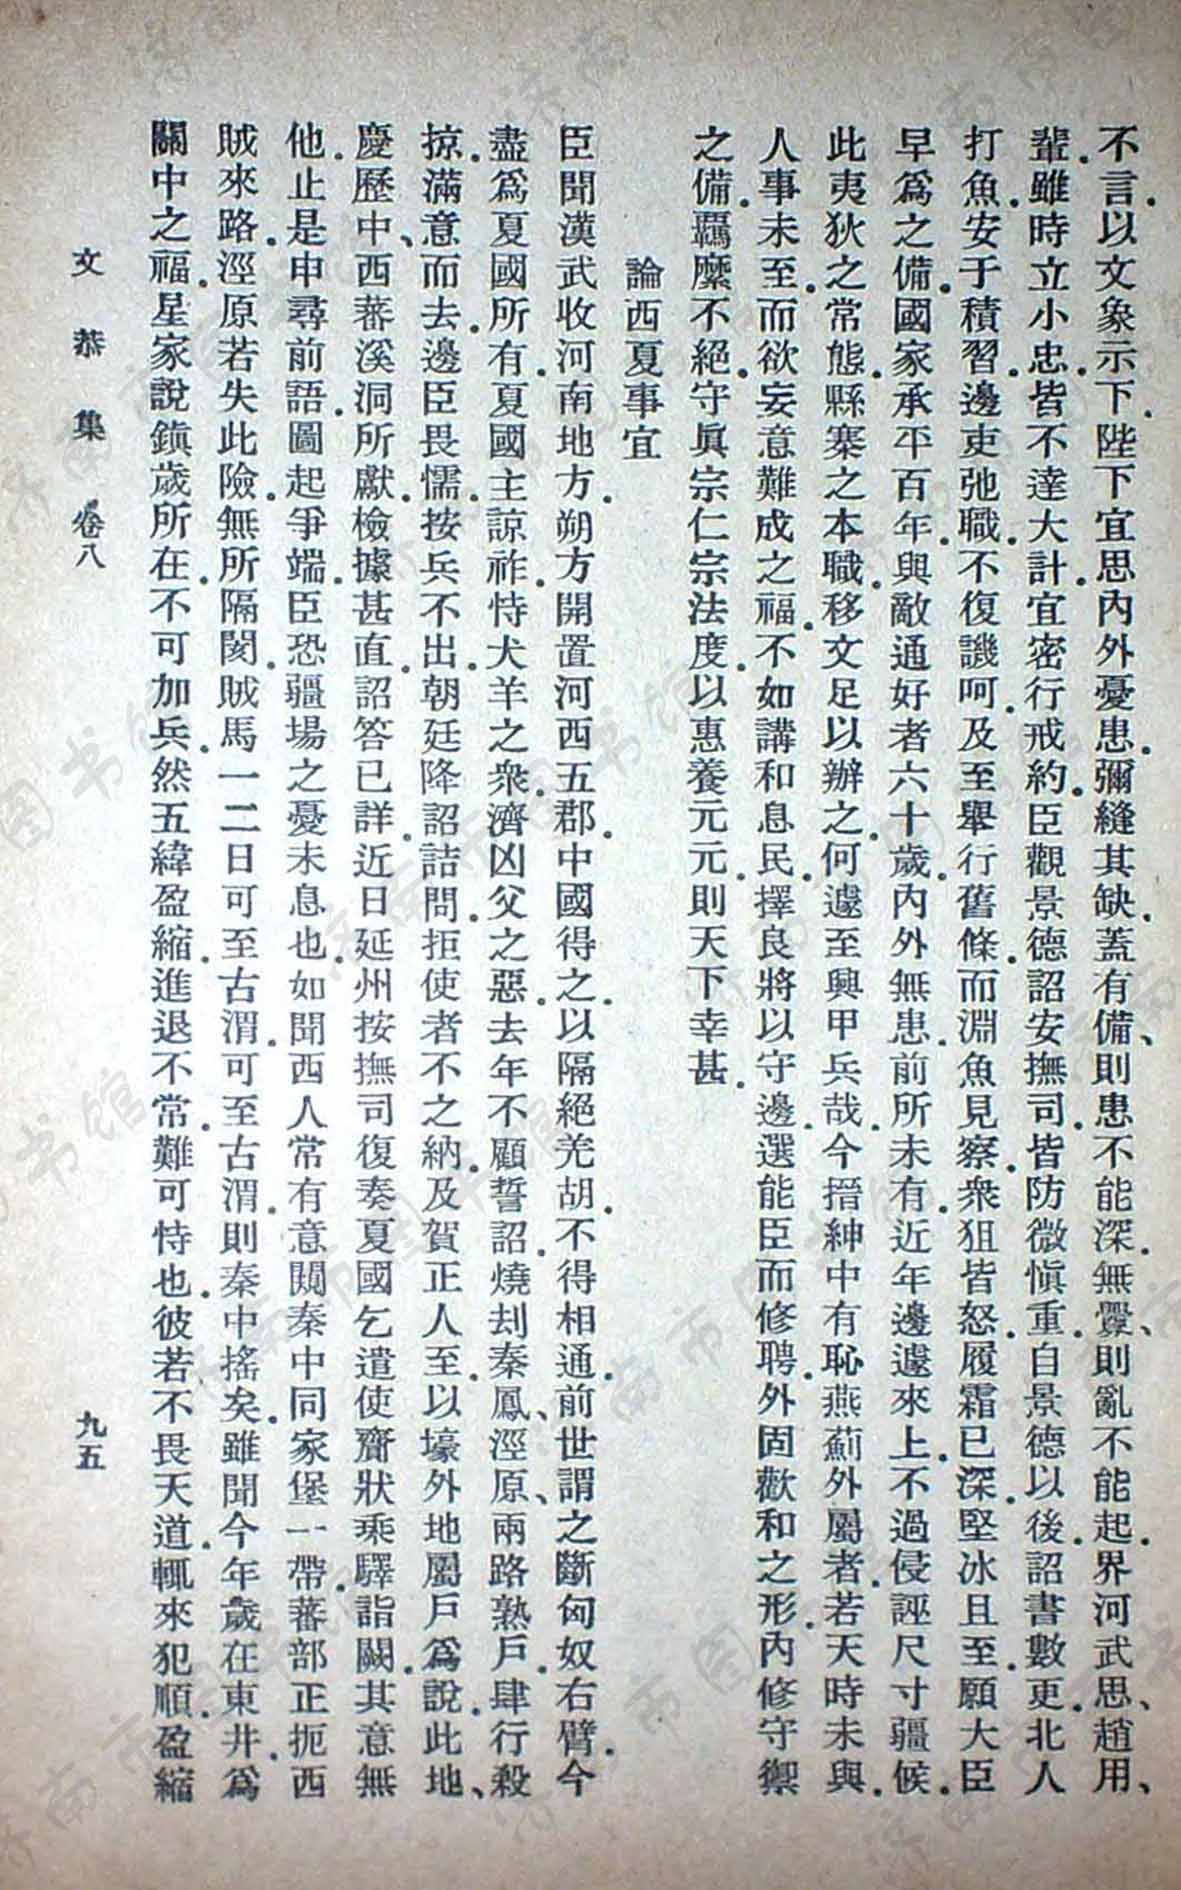 不言.以文象示下.陛下宜思內外憂患.彌縫其缺.蓋有備、則患不能深.無釁、則亂不能起.界河武思、趙用、
輩.雖時立小忠.皆不達大計.宜密行戒約.臣觀景德詔安撫司.皆防微愼重.自景德以後.詔書數更.北人
打魚.安于積習.邊吏弛職.不復譏呵.及至舉行舊條.而淵魚見察.衆狙皆怒.履霜已深.堅冰且至.願大臣
早爲之備.國家承平百年.與敵通好者六十歲.內外無患.前所未有.近年邊遽來上.不過侵誣尺寸疆候.
此夷狄之常態.縣寨之本職.移文足以辦之.何遽至興甲兵哉.今搢紳中有恥燕薊外屬者.若天時未與.
人事未至.而欲妄意難成之福.不如講和息民.擇良將以守邊.選能臣而修聘.外固歡和之形.內修守禦
之備.羈縻不絕.守眞宗仁宗法度.以惠養元元.則天下幸甚.
論西夏事宜
臣聞漢武收河南地方.朔方開置河西五郡.中國得之.以隔絕羌胡.不得相通.前世謂之斷匈奴右臂.今
盡爲夏國所有.夏國主諒祚.恃犬羊之衆.濟凶父之惡.去年不顧誓詔.燒刦秦鳳、涇原、兩路熟戶.肆行殺
掠.滿意而去.邊臣畏懦.按兵不出.朝廷降詔詰問.拒使者不之納.及賀正人至.以壕外地屬戶爲說.此地、
慶歷中、西蕃溪洞所獻.檢據甚直.詔答已詳.近日延州按撫司復奏夏國乞遣使齎狀乘驛詣闕.其意無
他.止是申尋前語.圖起爭端.臣恐疆場之憂未息也.如聞西人常有意闚秦中同家堡一帶.蕃部正扼西
賊來路.涇原若失此險.無所隔閡.賊馬一二日可至古渭.可至古渭.則秦中搖矣.雖聞今年歲在東井.爲
關中之福.星家說鎭歲所在.不可加兵.然五緯盈縮.進退不常.難可恃也.彼若不畏天道.輒來犯順.盈縮
文恭集 卷八
九五